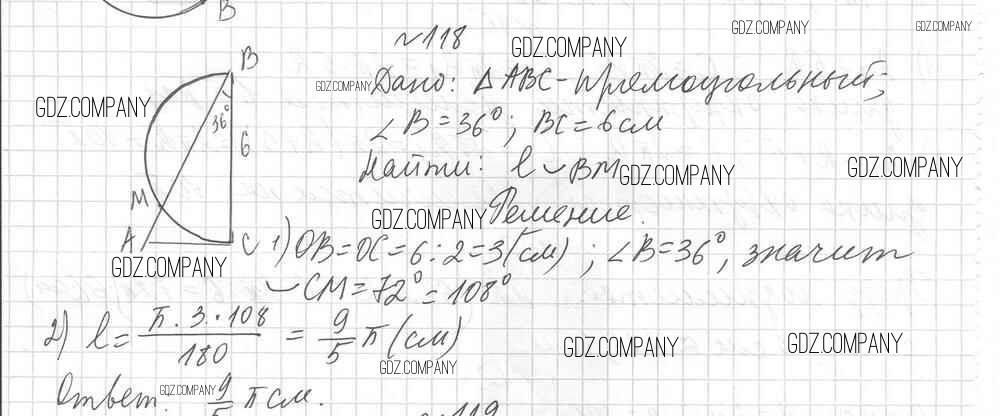 B
№118
GDZ.COMPANY
GDZ.COMPANY
GDZ.COMPANY
B
GDZ.COMPANY
Дано: △ABC - прямоугольный;
GDZ.COMPANY
36°
∠B = 36°; BC = 6 см
6
Найти: l ⌣ BM
GDZ.COMPANY
GDZ.COMPANY
M
GDZ.COMPANY
Решение.
A
C
1) OB = OC = 6 : 2 = 3 (см); ∠B = 36°, значит
GDZ.COMPANY
⌣ CM = 72° = 108°
2) l = π · 3 · 108 / 180 = 9/5 π (см)
GDZ.COMPANY
GDZ.COMPANY
GDZ.COMPANY
Ответ. 9/5 π см.
GDZ.COMPANY
№119